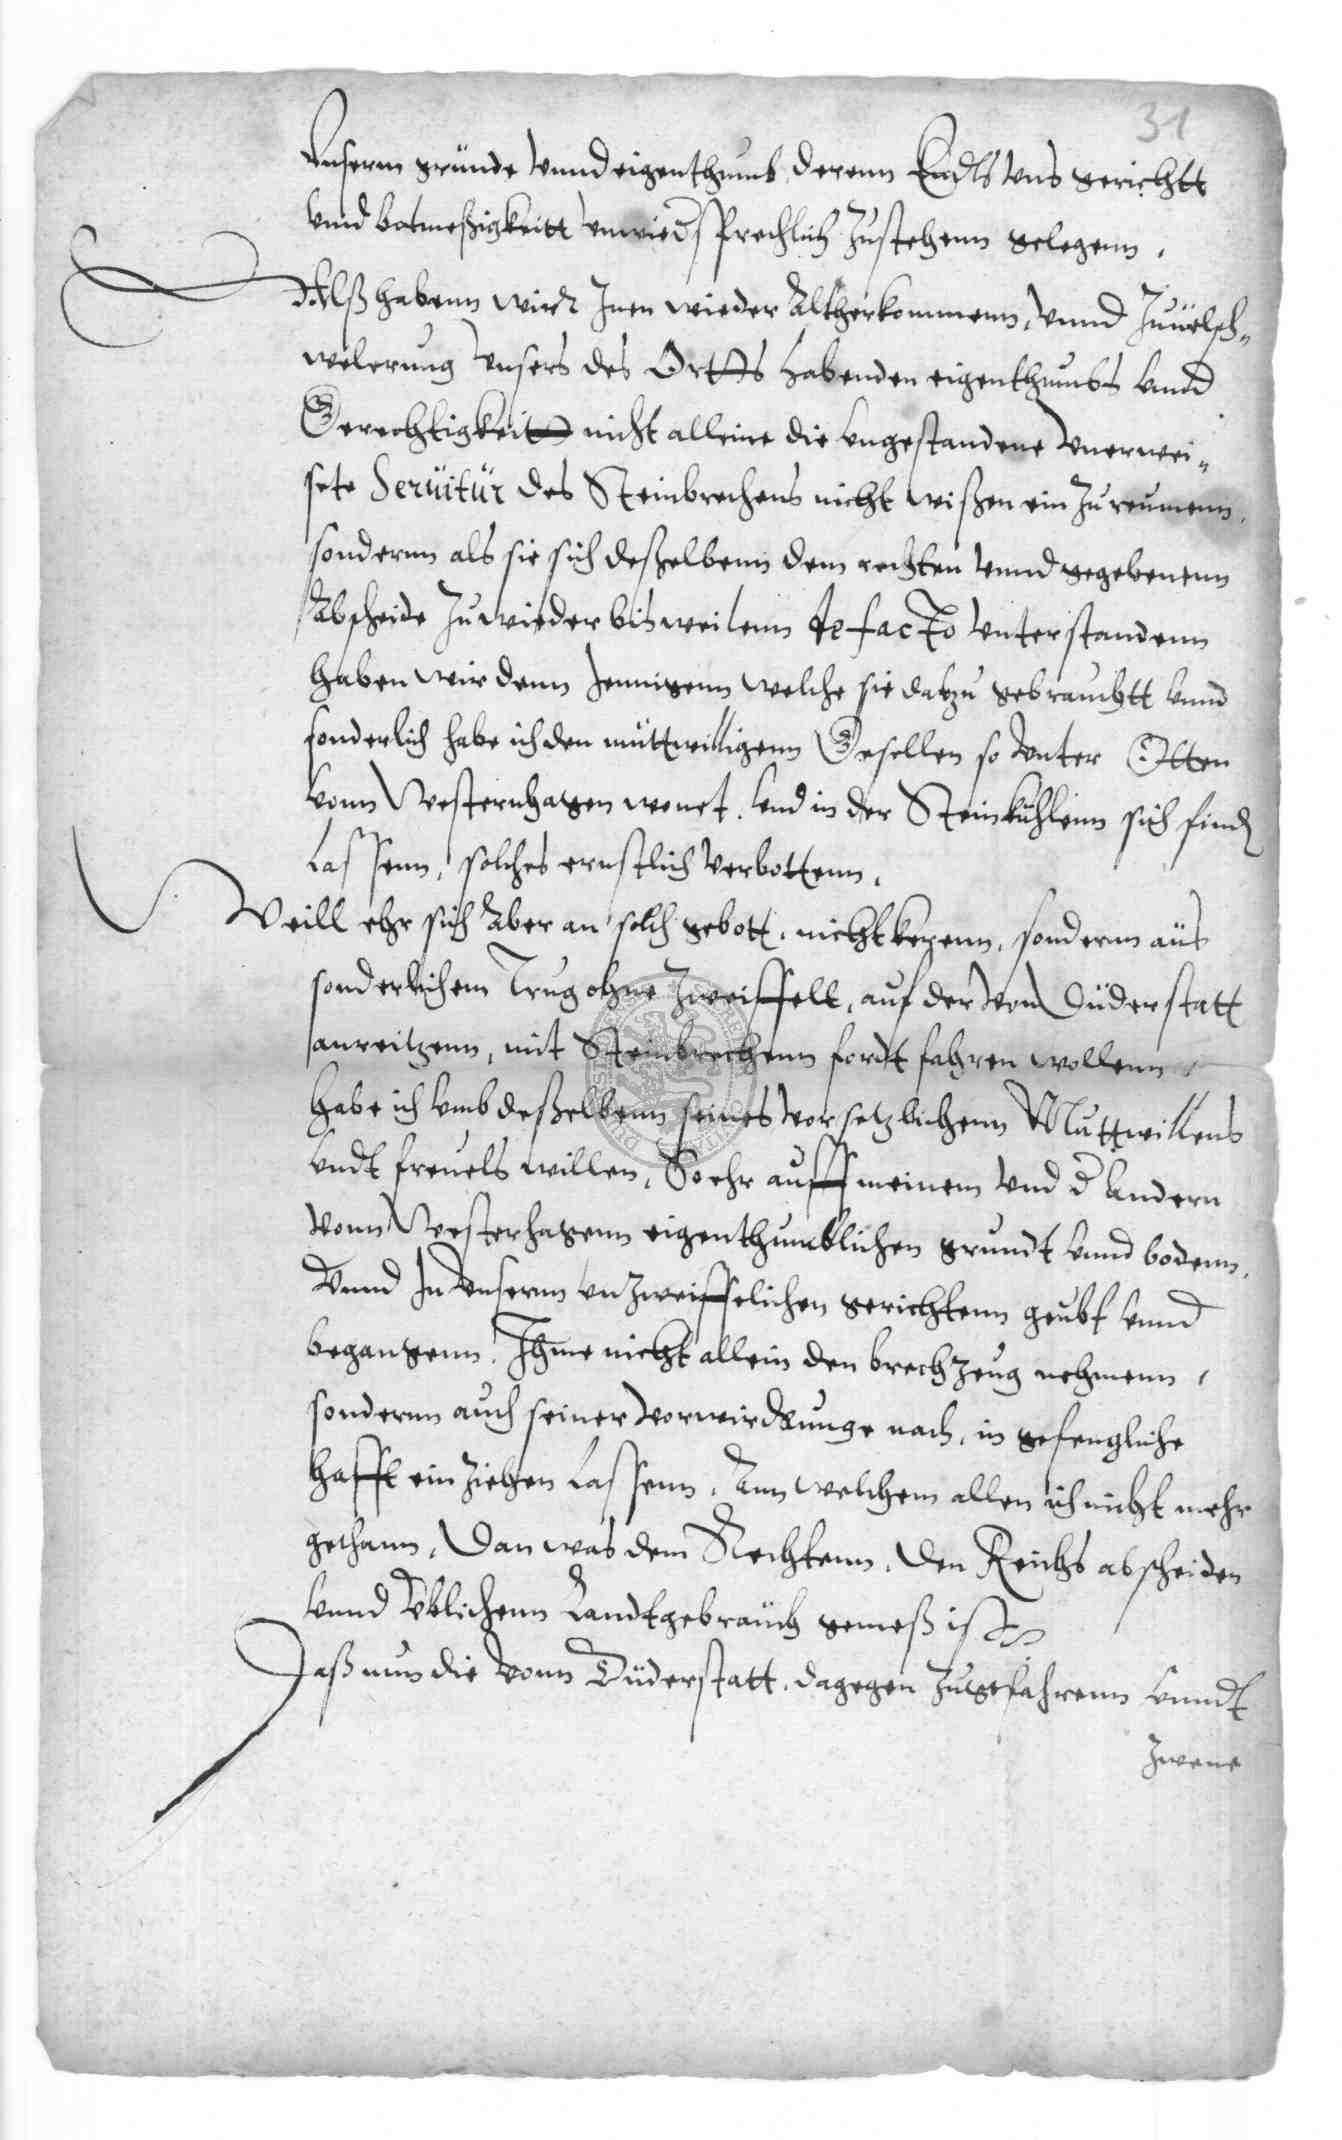 31
Vnserm grunde vnnd eigenthumb, derenn Endts vns gerichtt
vnnd botmeßigkeitt vnwiedsprechlich zustehenn gelegenn.
Alß habenn wir Inen wieder altherkommenn, vnnd zu
welerung vnsers des Orths habenden eigenthumbs vnnd
Gerechtigkeit nicht alleine die vngestandene vnerwei-
sete Seruitut des Steinbrechens nicht wißen ein zu reumenn,
sondernn als sie sich deßelbenn dem rechten vnnd gegebenenn
Abscheide zuwieder bisweilenn de facto vnterstandenn
haben wir denn Jennigenn welche sie datzu gebrauchtt vnnd
sonderlich habe ich den muttwilligenn Gesellen so vnter Otten
vonn Westernhagen wonet. vnd in der Steinkuhlenn sich find
lassenn, solches ernstlich verbottenn.
Weill ehr sich aber an solch gebott, nicht kerenn, sondernn aus
sonderlichem Trug ohne zweiffell, auf der von Duderstatt
anreitzenn, mit Steinbrechenn fordt fahren wollenn,
Habe ich vmb deßelbenn seines vorsetzlichenn Muttwillens
vndt freuels willen, So ehr auff meinem vnd d andern
vonn Westerhagenn eigenthumblichen grundt vnnd bodenn,
Vnnd In vnserm vnzweiffelichen gerichtenn geubt vnnd
begangenn. Ihme nicht allein den brechzeug nehmenn,
sondernn auch seiner vorwirckunge nach, in gefengliche
hafft ein ziehen lassenn, Ann welchem allen ich nicht mehr
gethann, Dan was dem Rechtenn, den Reichs abscheiden
vnnd vblichenn Landtgebrauch gemeß ist
Daß nun die vonn Duderstatt, dagegen zugefahrenn vnndt
zwene